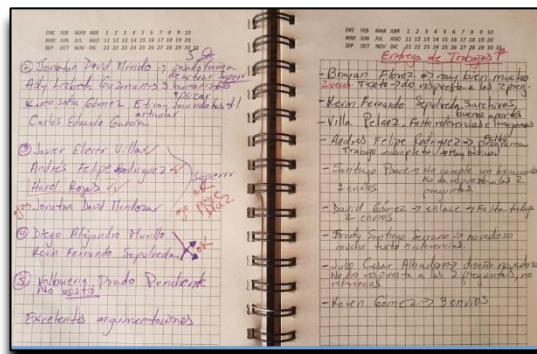 ENE FEB MAR ABR 1 2 3 4 5 6 7 8 9 10
MAY JUN JUL AGO 11 12 13 14 15 16 17 18 19 20
SEP OCT NOV DIC 21 22 23 24 25 26 27 28 29 30 31
Jonatan David
Guzman
Karen Sofia Gómez
articular
Carlos Eduardo García
③ Javier Eliecer Villar
Andrés Felipe Rodriguez
Harol Rojas
Jonatan David Mendoza
Superrr
④ Diego Alejandro Murillo
Kevin Fernando Sepulveda
ok
⑤ Valbuena Prado Pendiente
No asistió
Excelentes argumentaciones
ENE FEB MAR ABR 1 2 3 4 5 6 7 8 9 10
MAY JUN JUL AGO 11 12 13 14 15 16 17 18 19 20
SEP OCT NOV DIC 21 22 23 24 25 26 27 28 29 30 31
Entrega de Trabajos
- Brayan Florez → muy bien mucho
texto → da respuesta a las 2 preg.
- Kevin Fernando Sepulveda 3 archivos,
buenos aportes
- Villa Pelaez, Falto referencias e imagenes
- Andrés Felipe Rodriguez → Falto
Trabajo incompleto
- Santiago Ponce → No cumple
No da respuesta a las 2
2 envios preguntas
- David Gómez → enlace → Falta trabajo
2 envios
Santiago Serrano → novedoso
mucho texto referencias.
- Julio Cesar → diseño novedoso
No da respuesta a las 2 preguntas, no
- Karen Gómez → 3 envios